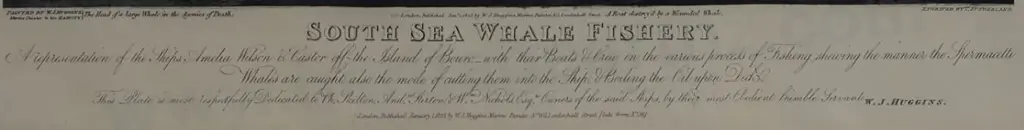 PAINTED BY W.J. HUGGINS, The Head of a large Whale in the Agonies of Death. London, Published by W.J. Huggins, Marine Painter, Leadenhall Street. A Boat destroy'd by a Wounded Whale. ENGRAVED BY T. SUTHERLAND
Marine Painter to his MAJESTY
SOUTH SEA WHALE FISHERY.
A representation of the Ships Amelia Wilson & Castor off the Island of Bouro, with their Boats & Crew in the various process of Fishing, shewing the manner the Spermacetti
Whales are caught also the mode of cutting them into the Ship & Boiling the Oil upon Deck &c.
This Plate is most respectfully Dedicated to Birton & W. Nichols Esqrs. Owners of the said Ships, by their most Obedient humble Servant, W. J. HUGGINS.
London, Published January 1, by W.J. Huggins Marine Painter, Leadenhall Street